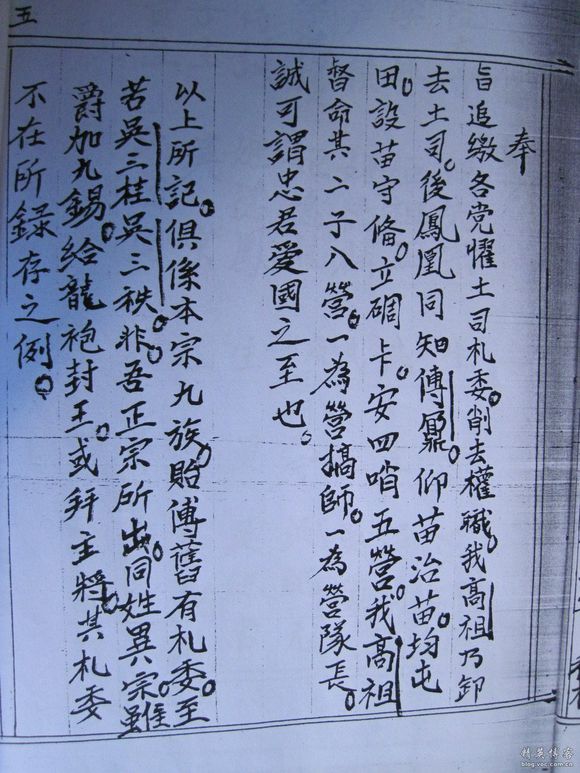 五
奉
旨追缴各党懼土司札委。削去權職。我高祖乃卸
去土司。後鳳凰同知傅鼐。仰苗治苗。均屯
田。設苗守俻。立碉卡。安四哨五營。我高祖
督命其二子入營。一為營搞師。一為營隊長。
誠可謂忠君愛國之至也。
以上所記。俱係本宗九族。貽傅舊有札委。至
若吳三桂吳三秩。非吾正宗所出。同姓異宗。雖
爵加九錫。給龍袍封王。或拜主將。其札委
不在所録存之例。
精英博客
blog.voc.com.cn